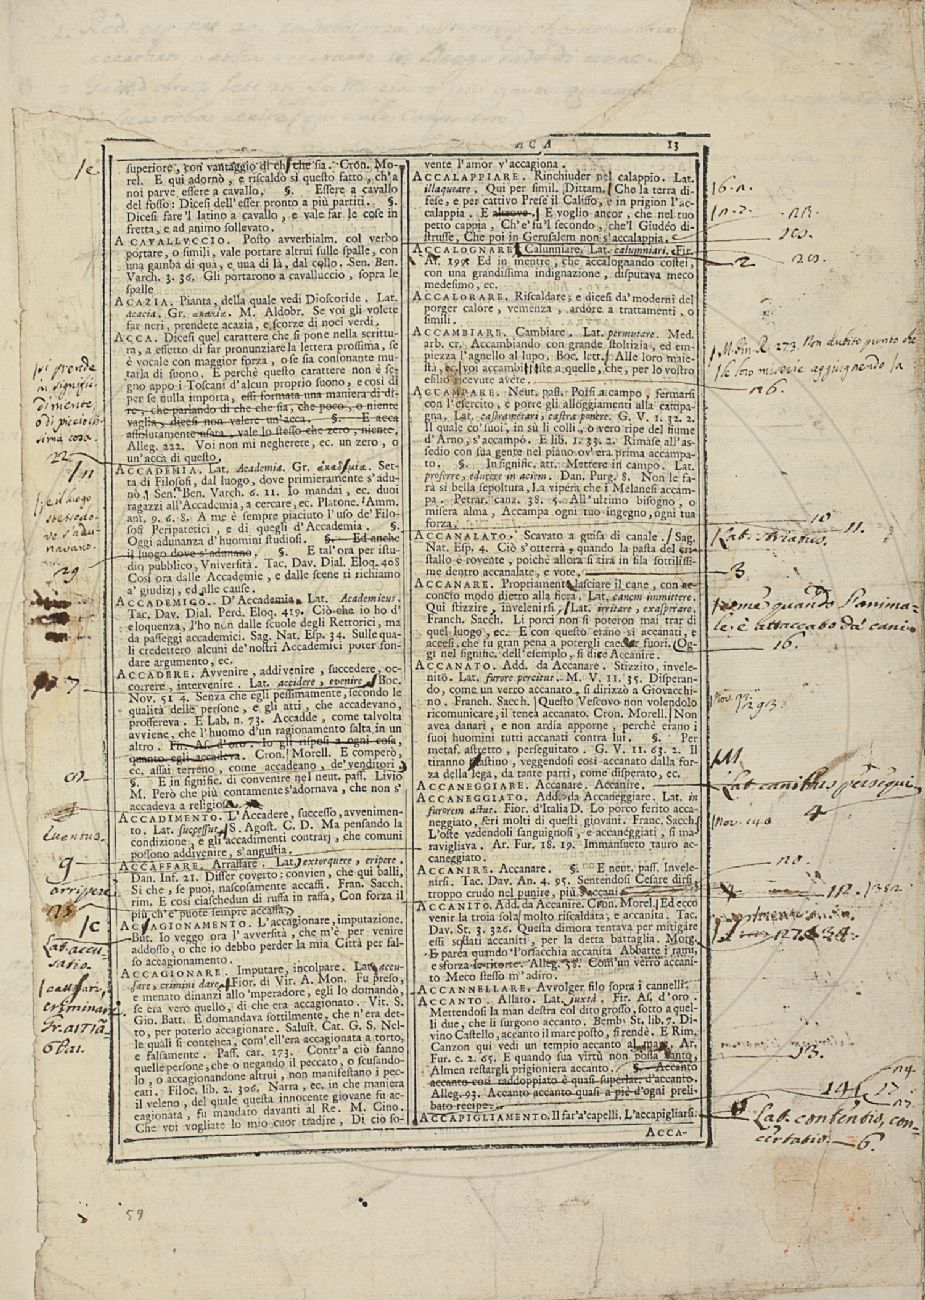 ACA 13
superiore, con vantaggio di chi che sia. Cron. Mo-
rel. E qui adornò, e riscaldò sì questo fatto, ch'a
noi parve essere a cavallo. §. Essere a cavallo
del fosso: Dicesi dell'esser pronto a più partiti. §.
Dicesi fare'l latino a cavallo, e vale far le cose in
fretta, e ad animo sollevato.
A CAVALLUCCIO. Posto avverbialm. col verbo
portare, o simili, vale portare altrui sulle spalle, con
una gamba di quà, e una di là, dal collo. Sen. Ben.
Varch. 3. 36. Gli portarono a cavalluccio, sopra le
spalle
ACAZIA. Pianta, della quale vedi Dioscoride. Lat.
acacia. Gr. M. Aldobr. Se voi gli volete
far neri, prendete acazia, e scorze di noci verdi.
ACCA. Dicesi quel carattere che si pone nella scrittu-
ra, a effetto di far pronunziare la lettera prossima, se
è vocale con maggior forza, o se sia consonante mu-
tarla di suono. E perchè questo carattere non è se-
gno appo i Toscani d'alcun proprio suono, e così di
per se nulla importa, essi formata una maniera di di-
re, che parlando di che che sia, che poco, o niente
vaglia, dicesi non valere un'acca. §. E acca
assolutamente usata, vale lo stesso che zero, niente.
Alleg. 222. Voi non mi negherere, ec. un zero, o
un'acca di questo.
ACCADEMIA. Lat. Academia. Gr. Set-
ta di Filosofi, dal luogo, dove primieramente s'adu-
nò. Sen. Ben. Varch. 6. 11. Io mandai, ec. duoi
ragazzi all'Accademia, a cercare, ec. Platone. Amm.
ant. 9. 6. 8. A me è sempre piaciuto l'uso de' Filo-
sofi Peripatetici, e di quegli d'Accademia. §.
Oggi adunanza d'huomini studiosi. §. Ed anche
il luogo dove s'adunano. §. E tal'ora per istu-
dio pubblico, Vniversità. Tac. Dav. Dial. Eloq. 408
Così ora dalle Accademie, e dalle scene ti richiamo
a' giudizj, ed alle cause.
ACCADEMICO. D'Accademia. Lat. Academicus.
Tac. Dav. Dial. Perd. Eloq. 419. Ciò che io ho d'
eloquenza, l'ho non dalle scuole degli Rettorici, ma
da passeggi accademici. Sag. Nat. Esp. 34. Sulle qua-
li credettero alcuni de' nostri Accademici poter fon-
dare argumento, ec.
ACCADERE. Avvenire, addivenire, succedere, oc-
correre, intervenire. Lat. accidere, evenire. Boc.
Nov. 51 4. Senza che egli pessimamente, secondo le
qualità delle persone, e gli atti, che accadevano,
proffereva. E Lab. n. 73. Accadde, come talvolta
avviene, che l'huomo d'un ragionamento salta in un
altro. Fir. As. d'oro. Io gli risposi a ogni cosa,
quanto egli accadeva. Cron. Morell. E comperò,
ec. assai terreno, come accadeano, de' venditori
§. E in signific. di convenire nel neut. pass. Livio
M. Però che più contamente s'adornava, che non s'
accadeva a religiosa.
ACCADIMENTO. L'Accadere, successo, avvenimen-
to. Lat. successus. S. Agost. C. D. Ma pensando la
condizione, e gli accadimenti contrarj, che comuni
possono addivenire, s'angustia.
ACCAFFARE. Arraffare. Lat. extorquere, eripere.
Dan. Inf. 21. Disser coverto: convien, che qui balli,
Sì che, se puoi, nascosamente accaffi. Fran. Sacch.
rim. E così ciaschedun di ruffa in raffa, Con forza il
più ch'e' puote sempre accaffa.
ACCAGIONAMENTO. L'accagionare, imputazione.
But. Io veggo ora l'avversità, che m'è per venire
addosso, o che io debbo perder la mia Città per fal-
so accagionamento.
ACCAGIONARE. Imputare, incolpare. Lat. accu-
sare, crimini dare. Fior. di Vir. A. Mon. Fu preso,
e menato dinanzi allo'mperadore, egli lo domandò,
se era vero quello, di che era accagionato. Vit. S.
Gio. Batt. E domandava sottilmente, che n'era det-
to, per poterlo accagionare. Salust. Cat. G. S. Nel-
le quali si contenea, com'ell'era accagionata a torto,
e falsamente. Pass. car. 173. Contr'a ciò fanno
quelle persone, che o negando il peccato, o scusando-
lo, o accagionandone altrui, non manifestano i pec-
cati. Filoc. lib. 2. 306. Narra, ec. in che maniera
il veleno, del quale questa innocente giovane fu ac-
cagionata, fu mandato davanti al Re. M. Gino.
Che voi vogliate lo mio cuor tradire, Di ciò so-
vente l'amor v'accagiona.
ACCALAPPIARE. Rinchiuder nel calappio. Lat.
illaqueare. Qui per simil. Dittam. Che la terra di-
fese, e per cattivo Prese il Califfo, e in prigion l'ac-
calappia. E altrove. E voglio ancor, che nel tuo
petto cappia, Ch'e' fu'l secondo, che'l Giudéo di-
strusse, Che poi in Gerusalem non s'accalappia.
ACCALOGNARE. Calunniare. Lat. calumniari. Fir.
As. 199. Ed in mentre, che accalognando costei,
con una grandissima indignazione, disputava meco
medesimo, ec.
ACCALORARE. Riscaldare; e dicesi da' moderni del
porger calore, vemenza, ardore a trattamenti, o
simili.
ACCAMBIARE. Cambiare. Lat. permutare. Med.
arb. cr. Accambiando con grande stoltizia, ed em-
piezza l'agnello al lupo. Boc. lett. Alle loro maie-
stà, ec. voi accambiaste a quelle, che, per lo vostro
esilio ricevute avete.
ACCAMPARE. Neut. pass. Porsi a campo, fermarsi
con l'esercito, e porre gli alloggiamenti alla campa-
gna. Lat. castrametari; castra ponere. G. V. 1. 32. 2.
Il quale co' suoi, in sù li colli, o vero ripe del fiume
d'Arno, s'accampò. E lib. 1. 33. 2. Rimase all'as-
sedio con sua gente nel piano ov'era prima accampa-
to. §. In signific. att. Mettere in campo. Lat.
proferre, educere in aciem. Dan. Purg. 8. Non le fa-
rà sì bella sepoltura, La vipera che i Melanesi accam-
pa. Petrar. canz. 38. 5. All'ultimo bisogno, o
misera alma, Accampa ogni tuo ingegno, ogni tua
forza.
ACCANALATO. Scavato a guisa di canale. Sag.
Nat. Esp. 4. Ciò s'otterrà, quando la pasta del cri-
stallo è rovente, poichè allora si tira in fila sottilissi-
me dentro accanalate, e vote.
ACCANARE. Propriamente lasciare il cane, con ac-
concio modo dietro alla fiera. Lat. canem immittere.
Qui stizzire, invelenirsi. Lat. irritare, exasperare.
Franch. Sacch. Li porci non si poteron mai trar di
quel luogo, ec. E con questo erano sì accanati, e
accesi, che fu gran pena a potergli cacciar fuori. Og-
gi nel signific. dell'esempio, si dice Accanire.
ACCANATO. Add. da Accanare. Stizzito, invele-
nitò. Lat. furore percitus. M. V. 11. 35. Disperan-
do, come un verro accanato, si dirizzò a Giovacchi-
no. Franch. Sacch. Questo Vescovo non volendolo
ricomunicare, il tenéa accanato. Cron. Morell. Non
avea danari, e non ardía apporne, perchè erano i
suoi huomini tutti accanati contra lui. §. Per
metaf. astretto, perseguitato. G. V. 11. 63. 2. Il
tiranno Mastino, veggendosi così accanato dalla for-
za della lega, da tante parti, come disperato, ec.
ACCANEGGIARE. Accanare. Accanire.
ACCANEGGIATO. Add. da Accaneggiare. Lat. in
furorem actus. Fior. d'Italia D. Lo porco ferito acca-
neggiato, ferì molti di questi giovani. Franc. Sacch.
L'oste vedendoli sanguignosi, e accaneggiati, si ma-
ravigliava. Ar. Fur. 18. 19. Immansueto tauro ac-
caneggiato.
ACCANIRE. Accanare. §. E neut. pass. Invele-
nirsi. Tac. Dav. An. 4. 95. Sentendosi Cesare dirsi
troppo crudo nel punire, più s'accanì.
ACCANITO. Add. da Accanire. Cron. Morel. Ed ecco
venir la troia sola molto riscaldata, e accanita. Tac.
Dav. St. 3. 326. Questa dimora tentava per mitigare
essi soldati accaniti, per la detta battaglia. Morg.
E parea quando l'orsacchia accanita Abbatte i rami,
e sforza le ritorte. Alleg. 58. Com'un verro accani-
to Meco stesso m'adiro.
ACCANNELLARE. Avvolger filo sopra i cannelli.
ACCANTO. Allato. Lat. juxtà. Fir. As. d'oro.
Mettendosi la man destra col dito grosso, sotto a quel-
li due, che li surgono accanto. Bemb. St. lib. 7. Di-
vino Castello, accanto il mare posto, si rendè. E Rim.
Canzon qui vedi un tempio accanto al mare. Ar.
Fur. c. 2. 65. E quando sua virtù non possa tanto,
Almen restargli prigioniera accanto. §. Accanto
accanto così raddoppiato è quasi superlat. d'accanto.
Alleg. 93. Accanto accanto quasi a piè d'ogni preli-
bato recipe.
ACCAPIGLIAMENTO. Il far'a'capelli. L'accapigliarsi.
ACCA-
22
29
7
9
25
Lat. accu-
satio.
16. n.
2
3
Lat. striatus.
11.
10
16.
Lat. canibus persequi
4
13.
Lat. contentio, con-
certatio. 6.
59